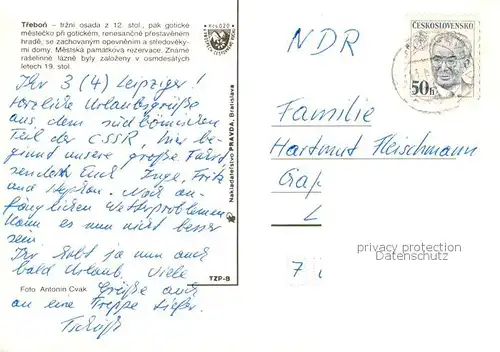 Třeboň – tržní osada z 12. stol., pak gotické
městečko při gotickém, renesančně přestavěném
hradě, se zachovaným opevněním a středověký-
mi domy. Městská památková rezervace. Známé
rašelinné lázně byly založeny v osmdesátých
letech 19. stol.
Ihr 3 (4) Leipziger!
Herzliche Urlaubsgrüße
aus dem südböhmischen
Teil der CSSR, hier be-
ginnt unsere große Fahrt
senden Euch Inge, Fritz
und
Nach an-
fänglichen Wetterproblemen
kann es nun nicht besser
sein.
Ihr habt ja nun auch
bald Urlaub. Viele
Foto Antonín Cvak Grüße auch
an eine Treppe tiefer.
Tschüß
Kčs 0,20
Nakladatelstvo PRAVDA, Bratislava
TZP-B
ČESKOSLOVENSKO
50 h
NDR
Familie
Hartmut Fleischmann
L
7
privacy protection
Datenschutz